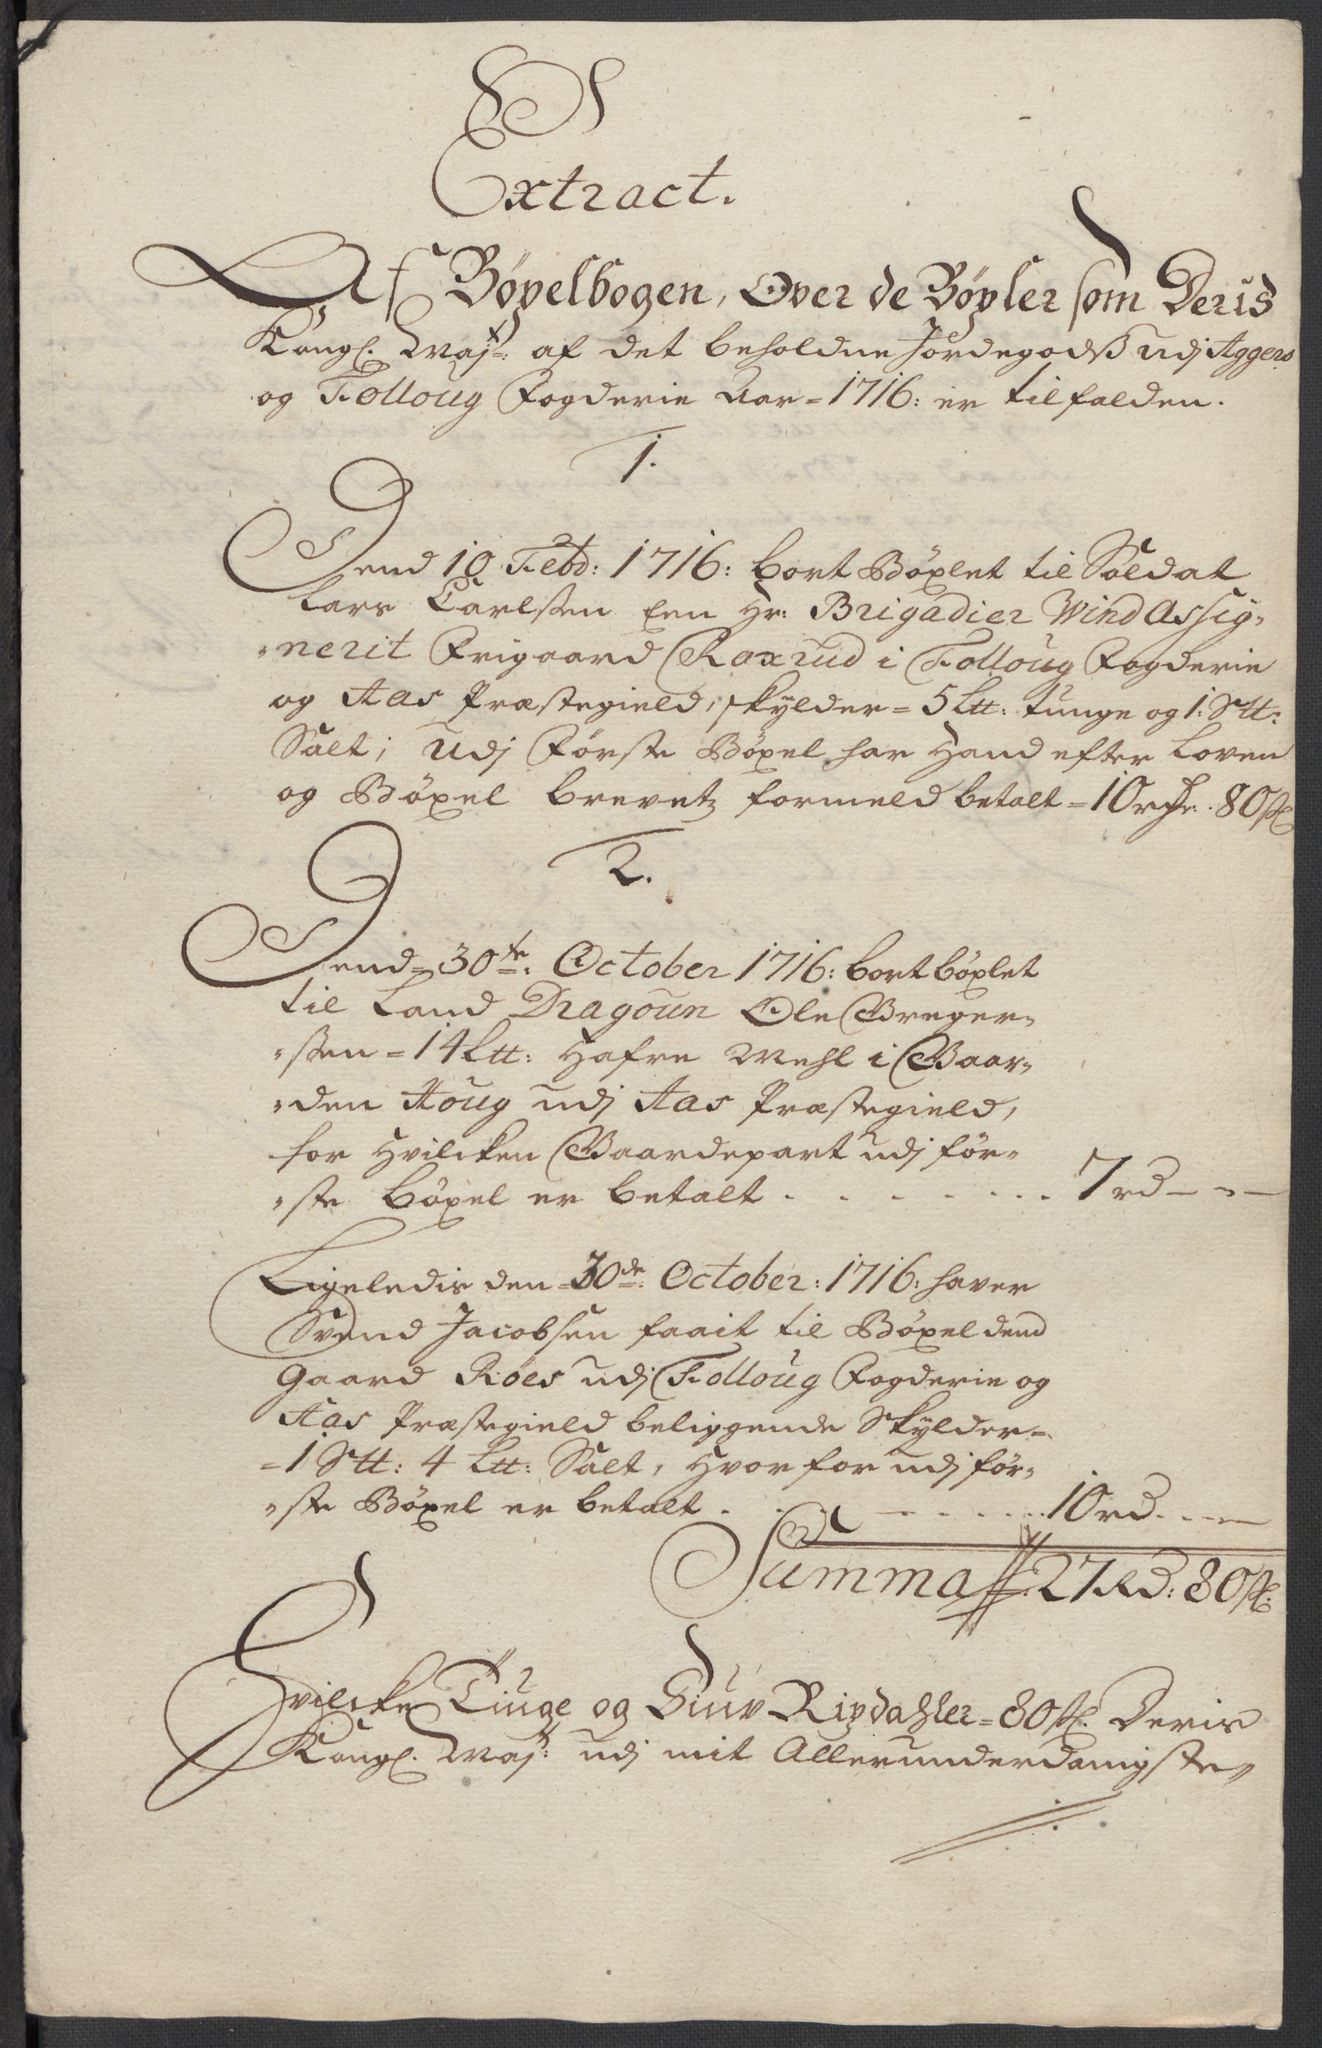 Extract.
Af Böxelbogen, Over de Böxler som Deris
Kongl. Maj: af det beholdne Jordegodß udj Aggers
og Folloug Fogderie Aar = 1716: er tilfalden.
1.
Dend 10 Febr: 1716: bort Böxlet til Soldat
Lars Carlssen een Hr: Brigadier Wind Assig-
-nerit Frigaard Roxrud i Follougs Fogderie
og Aas Præstegield, skylder = 5 Ltt: tunge og 1: Stt:
Salt; Udj Förste Böxel har Hand efter Loven
og Böxel brevetz formeld betalt = 10 rdr. 80 sk
2.
Dend = 30te: October 1716: bort böxlet
til Land Dragoun Ole Greger-
-ssen = 14 Ltt: Hafre Mehl i Gaar-
-den Houg udj Aas Præstegield,
for Hvilcken Gaardepart udj för-
-ste böxel er betalt . . . . . . . . 7 rd - - -
Ligeledis den = 30de: October: 1716: haver
Svend Jacobsen faait til Böxel dend
Gaard Röes udj Folloug Fogderie og
Aas Præstegield beliggende Skylder =
= 1 Stt: 4 Ltt: Salt, Hvor for udj för-
-ste Böxel er betalt . . . . . . 10 rd - - -
Summa 27 Rd: 80 sk:
Hvilcke Tiuge og Siuv Rixdahler = 80 sk. Deris
Kongl. Maj: udj mit Allerunderdanigste